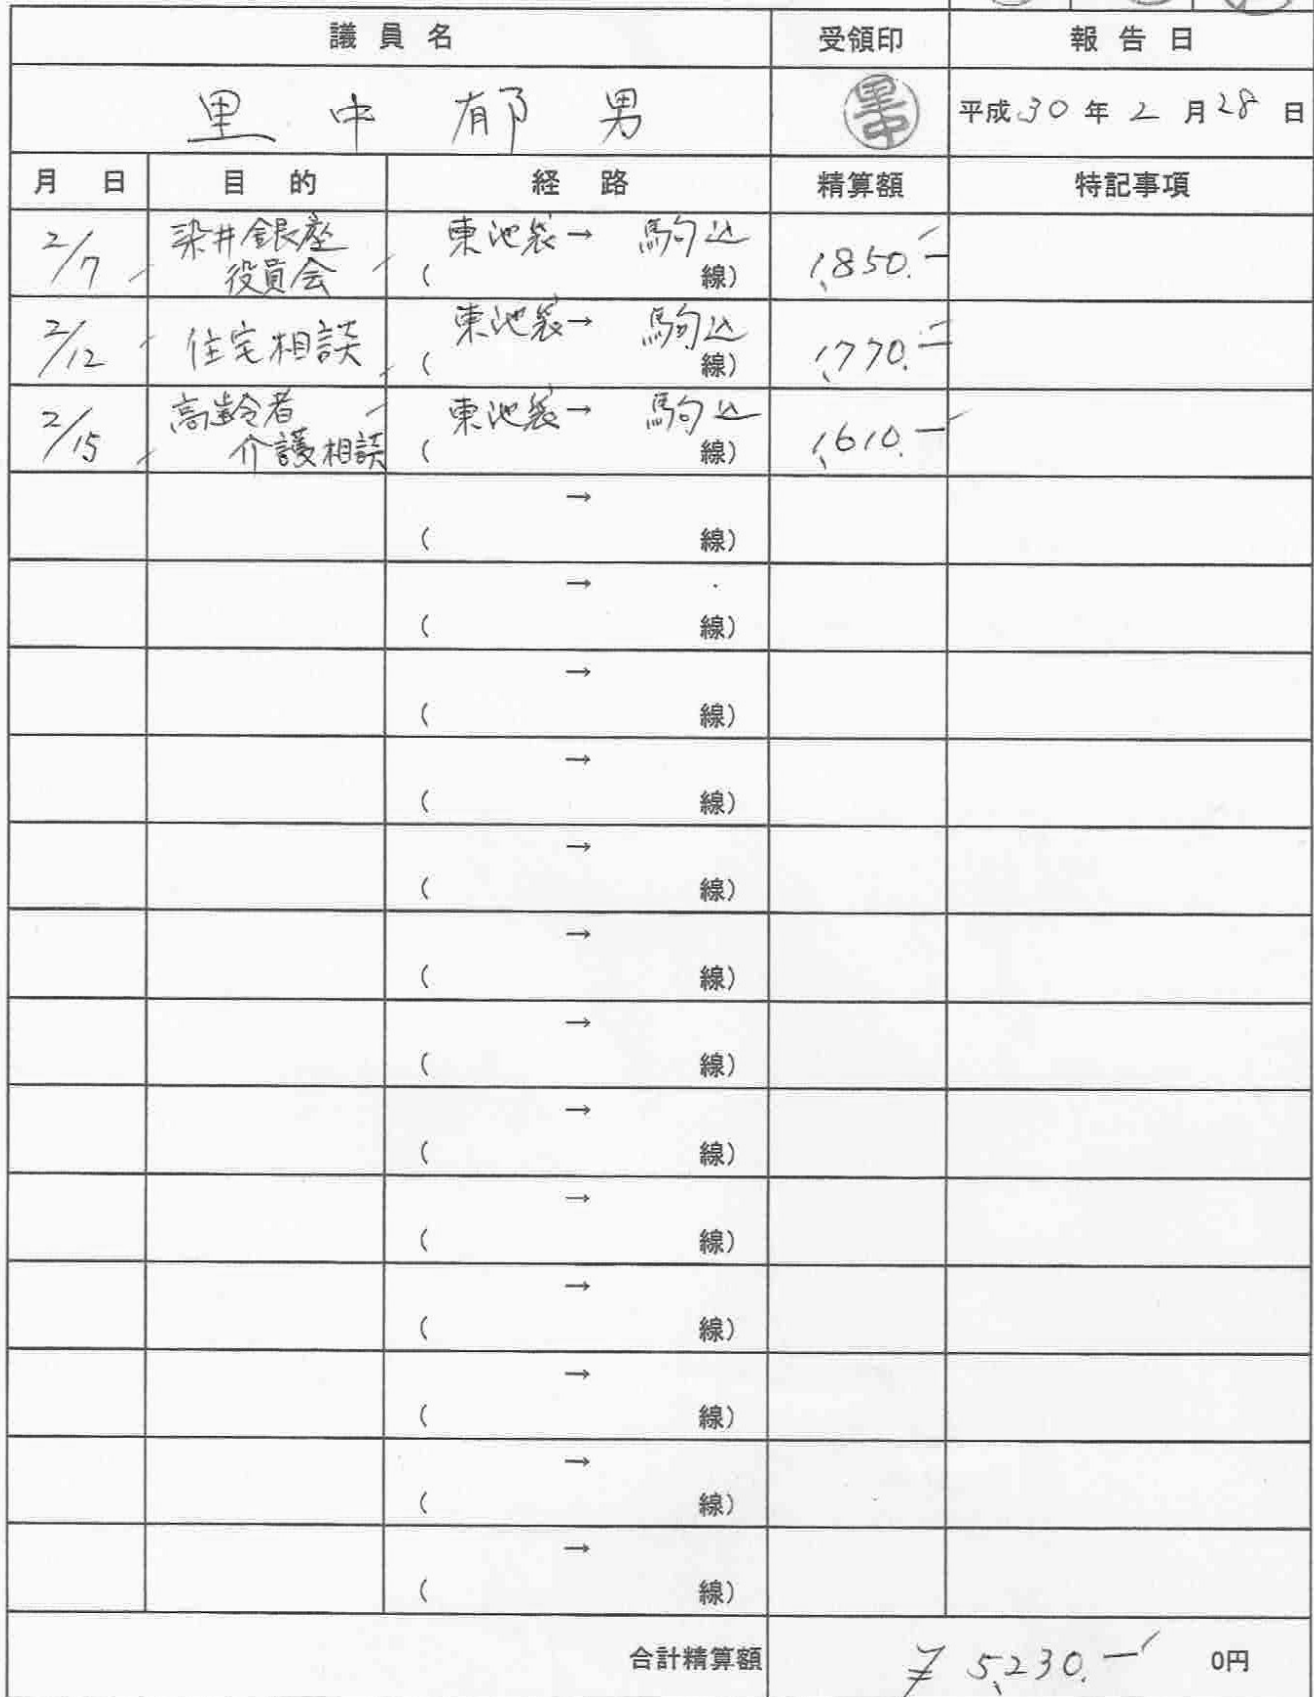 議員名 受領印 報告日
里中郁男 里中 平成30年2月28日
月日 目的 経路 精算額 特記事項
2/7 染井銀座 東池袋→ 駒込 1,850.-
役員会 ( 線)
2/12 住宅相談 東池袋→ 駒込 1,770.-
( 線)
2/15 高齢者 東池袋→ 駒込 1,610.-
介護相談 ( 線)
→
( 線)
→
( 線)
→
( 線)
→
( 線)
→
( 線)
→
( 線)
→
( 線)
→
( 線)
→
( 線)
→
( 線)
→
( 線)
→
( 線)
→
( 線)
合計精算額 ¥ 5,230.- 0円